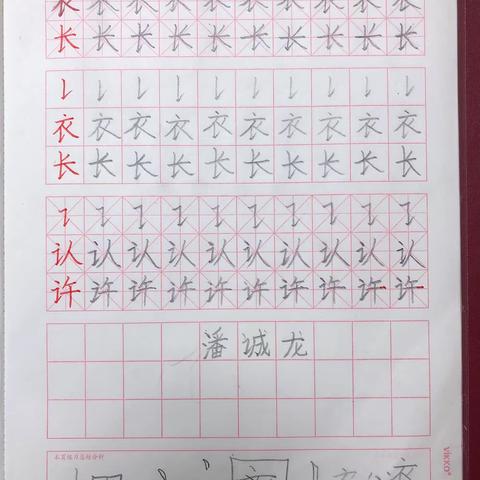 衣 衣 衣 衣 衣 衣 衣 衣 衣 衣
长 长 长 长 长 长 长 长 长 长
衣 衣 衣 衣 衣 衣 衣 衣 衣 衣
长 长 长 长 长 长 长 长 长 长
认 认 认 认 认 认 认 认 认 认
许 许 许 许 许 许 许 许 许 许
潘 诚 龙
本页练习总结分析
VIKKO